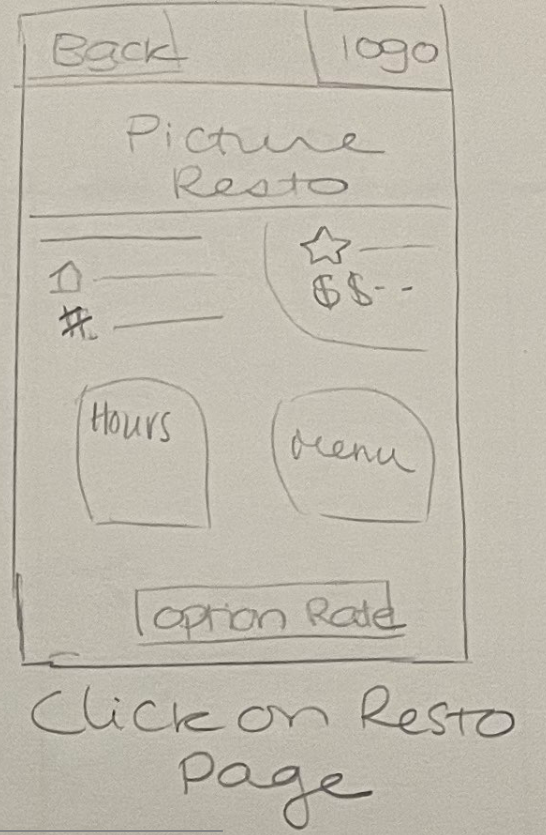 Back
logo
Picture
Resto
$$--
#
Hours
Menu
option Rate
Click on Resto
Page